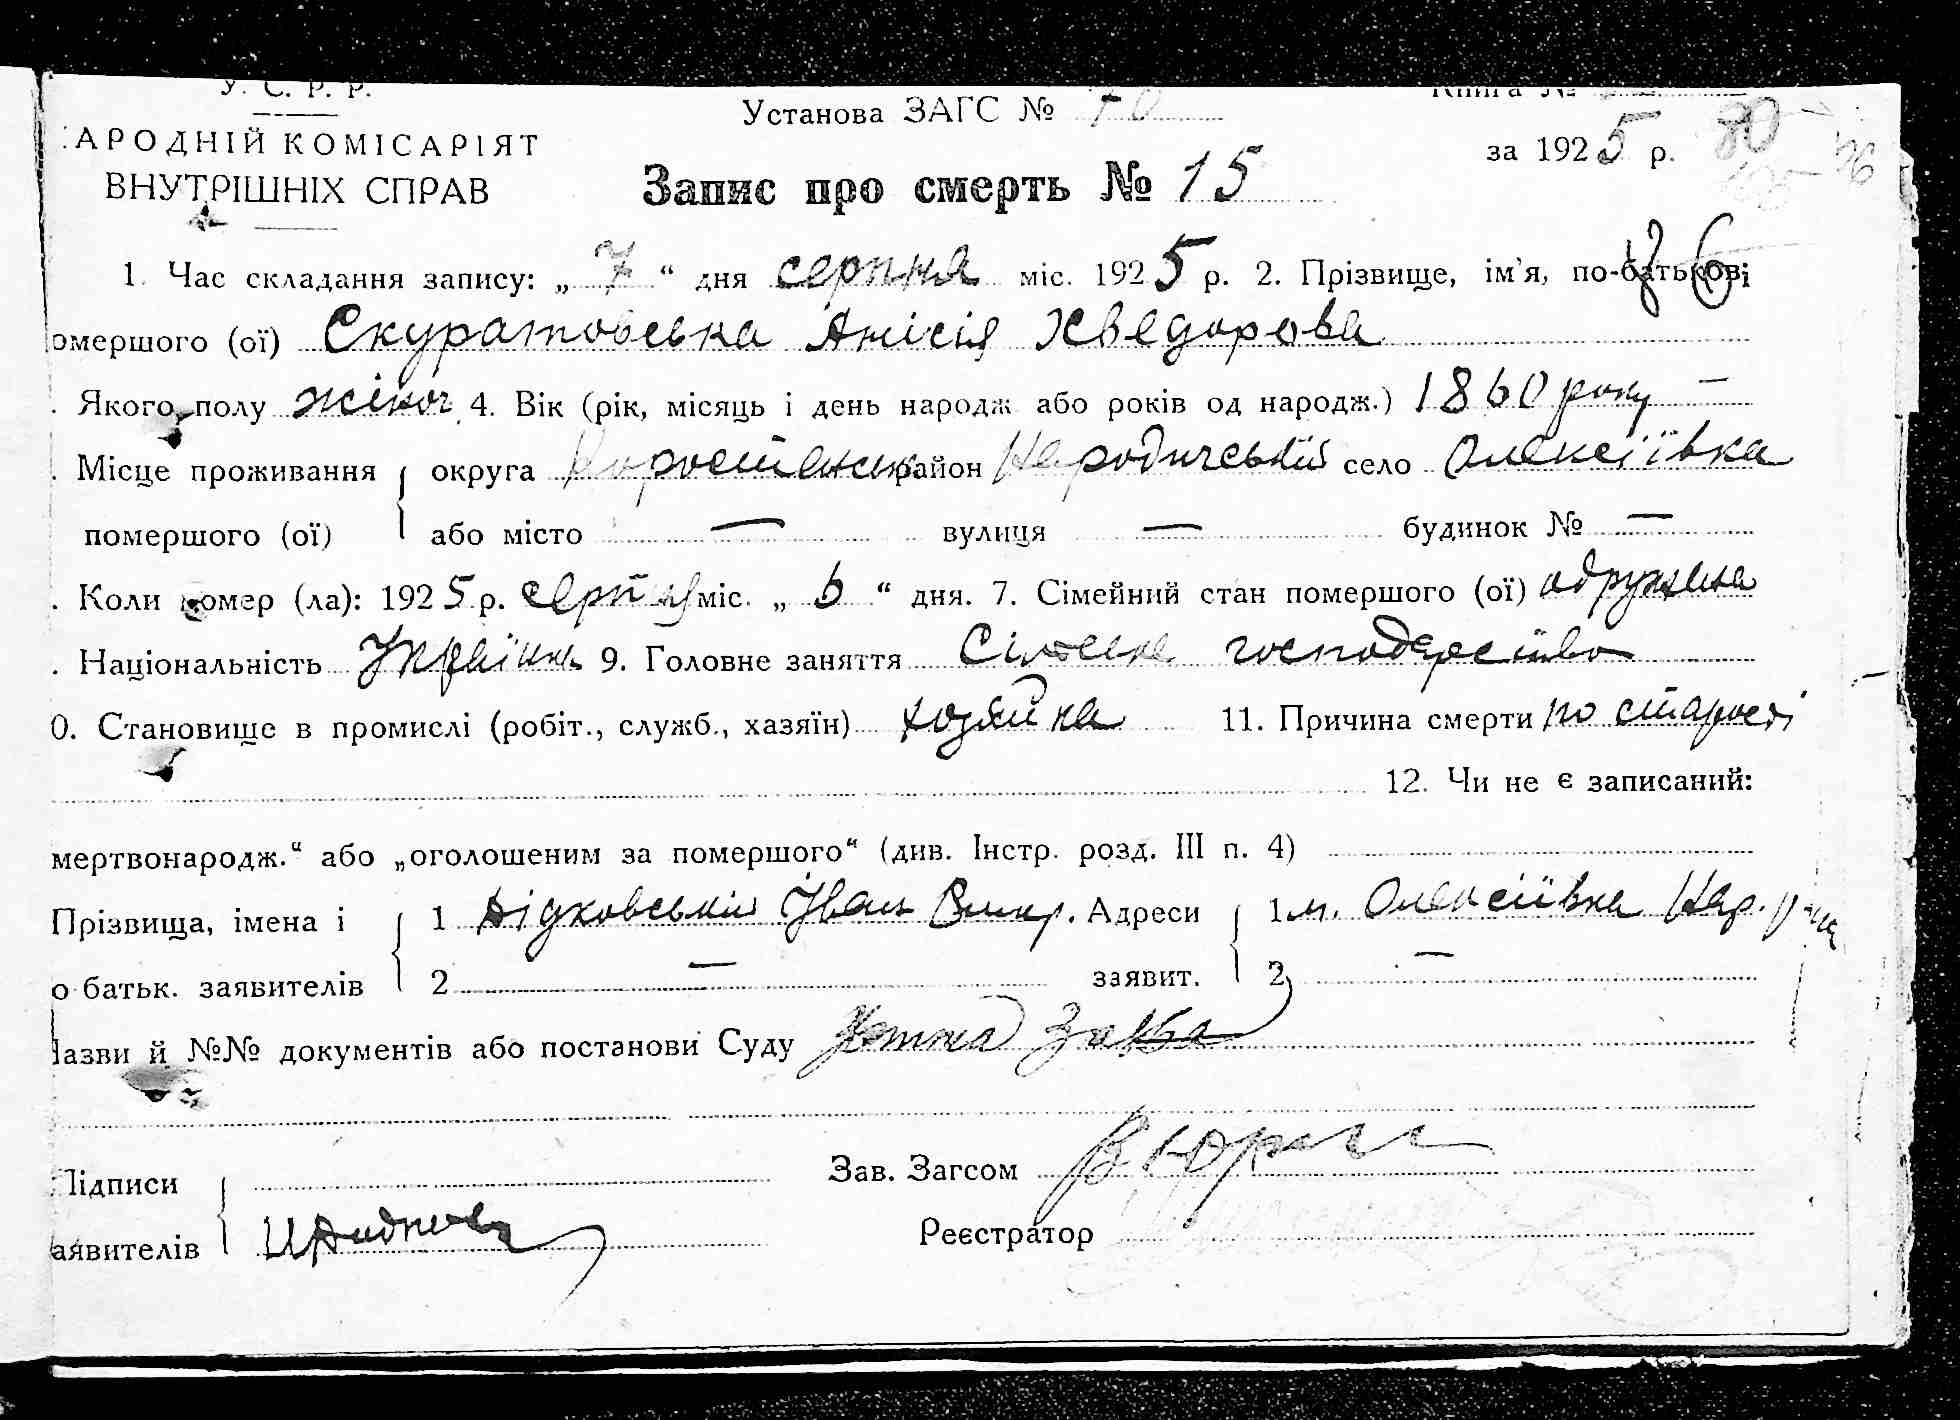 У. С. Р. Р.
Установа ЗАГС № 70 Книга №
АРОДНІЙ КОМІСАРІЯТ за 1925 р. 80
ВНУТРІШНІХ СПРАВ Запис про смерть № 15
1. Час складання запису: „ 7 “ дня серпня міс. 1925 р. 2. Прізвище, ім'я, по-батькові
омершого (ої) Скуратовська Анісія Хведорова
. Якого полу жіноч 4. Вік (рік, місяць і день народж або років од народж.) 1860 року —
. Місце проживання округа Коростенськ район Народичський село Олексіївка
помершого (ої) або місто — вулиця — будинок № —
. Коли помер (ла): 1925 р. серпня міс. „ 6 “ дня. 7. Сімейний стан помершого (ої) одружена
. Національність Українк 9. Головне заняття Сільське господарство
0. Становище в промислі (робіт., служб., хазяїн) хозяйка 11. Причина смерти по старості
12. Чи не є записаний:
мертвонародж.“ або „оголошеним за помершого“ (див. Інстр. розд. III п. 4)
Прізвища, імена і 1 Дідковський Іван Адреси 1 м. Олексіївка Нар. р-на
о батьк. заявителів 2 — заявит. 2 —
азви й №№ документів або постанови Суду Устна заява
Підписи Зав. Загсом
аявителів Реєстратор